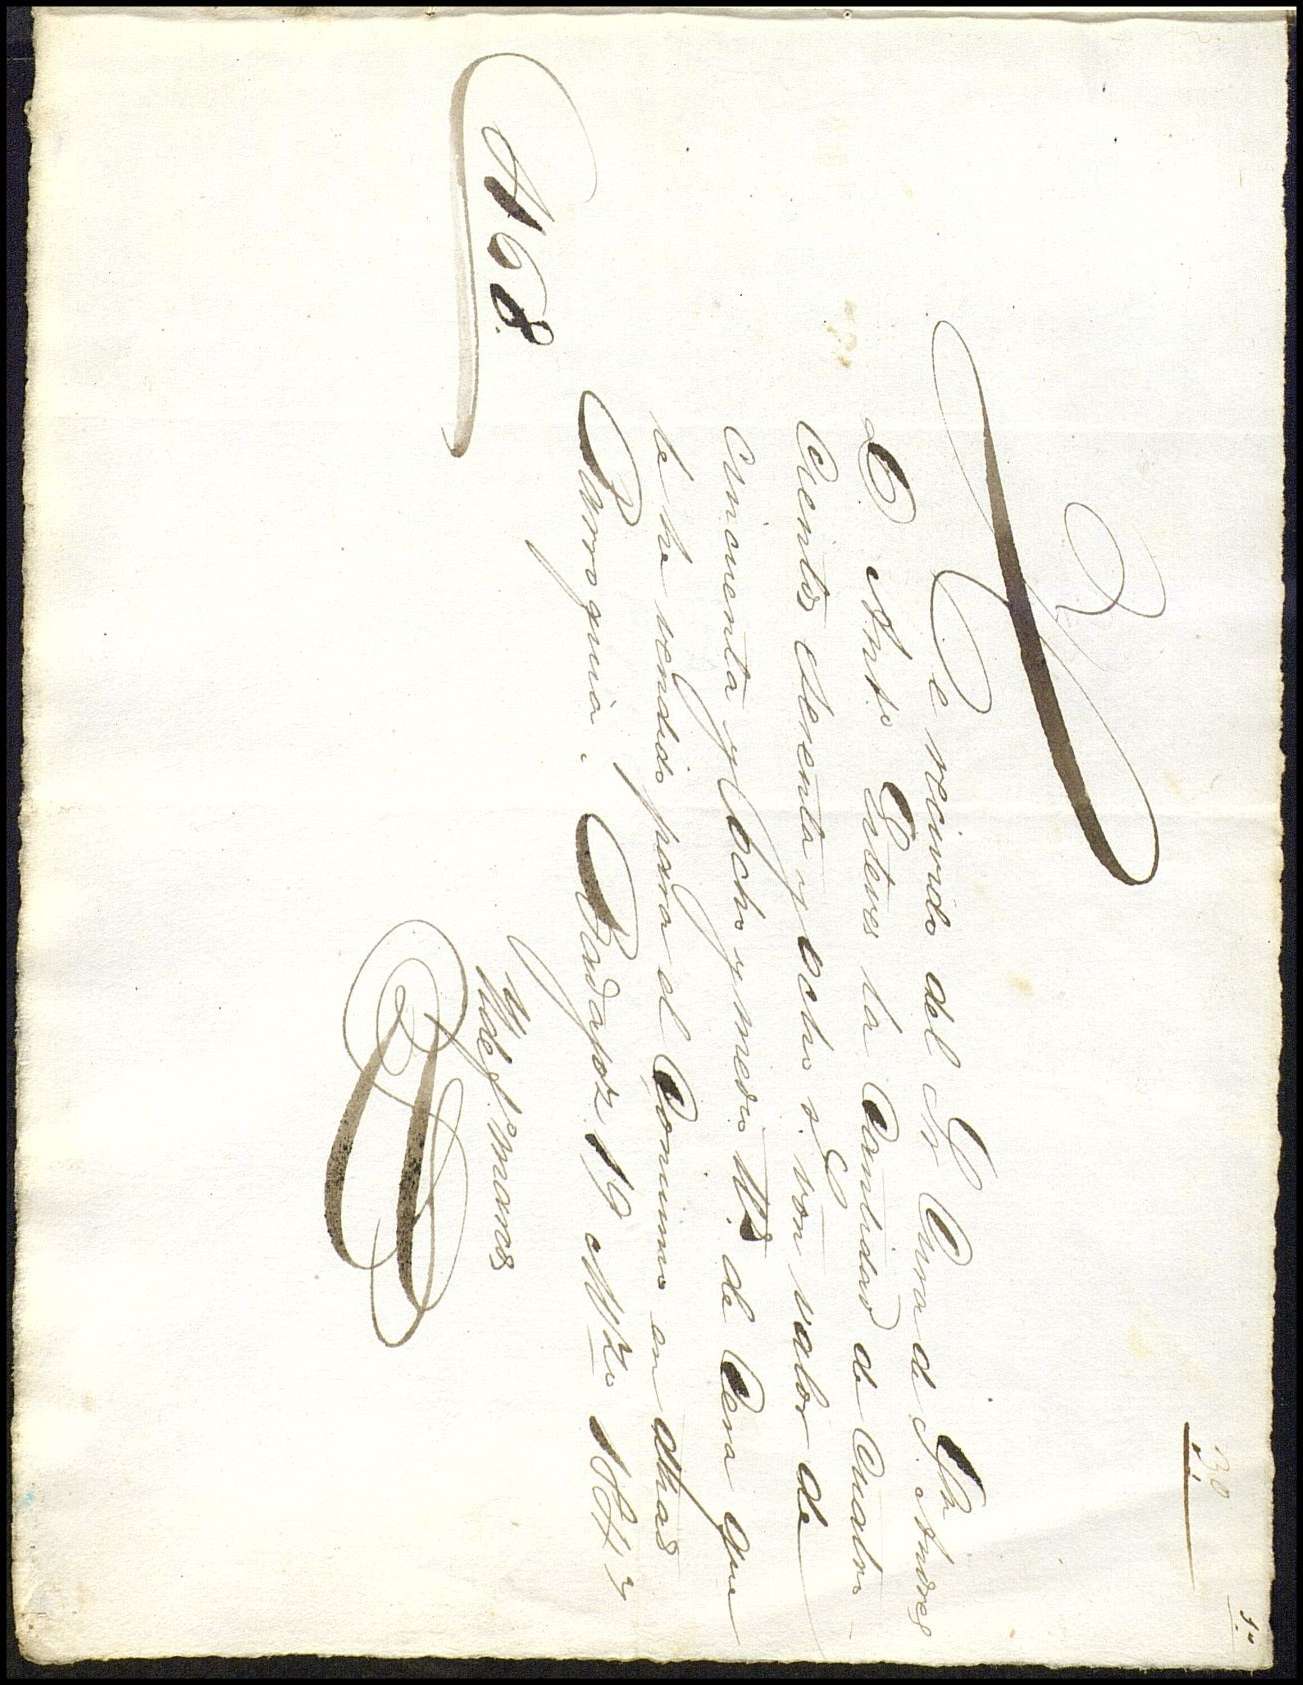 He recivido del Sr Cura de Sn Andres
D Anto Esteves la Cantidad de Cuatro
Cientos sesenta y ocho rs von valor de
Cincuenta y ocho y media lbs de Cera que
le he vendido para el Consumo en dhas
Parroquia. Badajoz 19 Mzo 1844
Hermanos
468